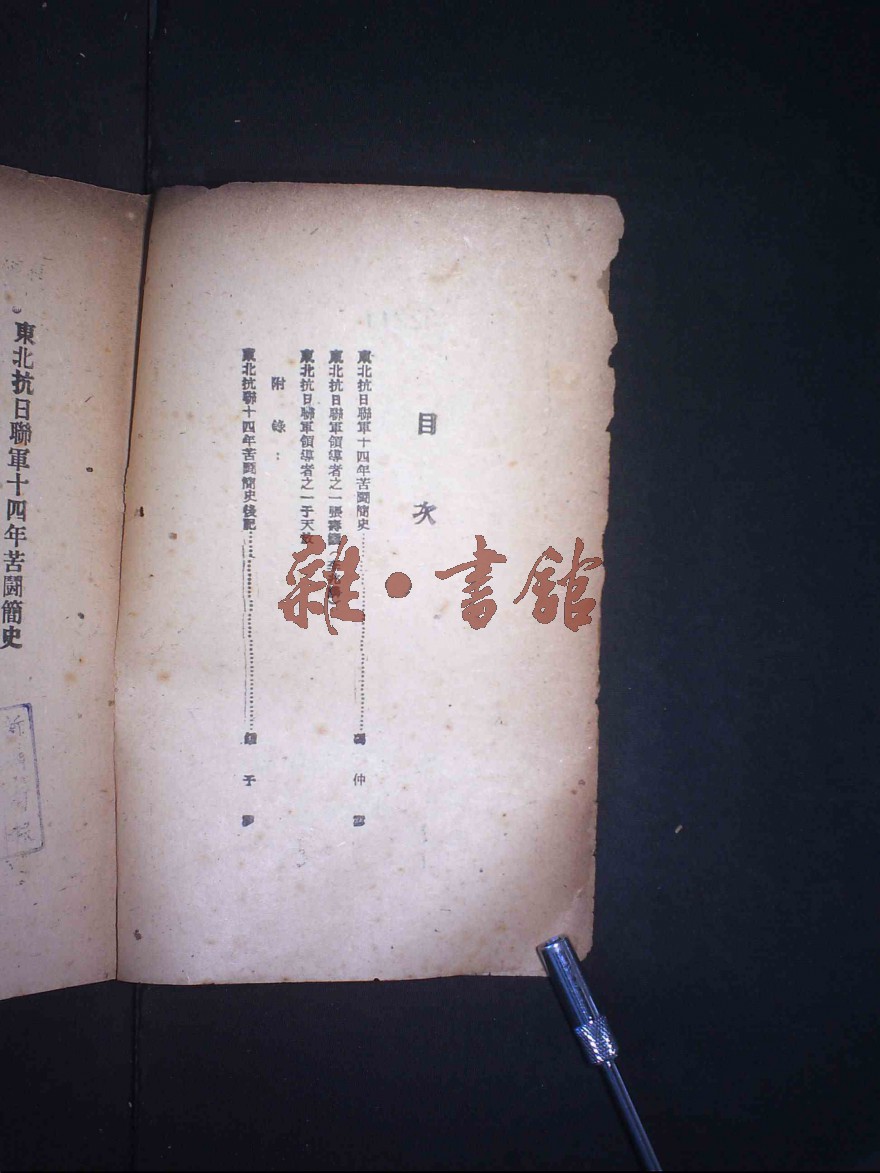 目次
東北抗日聯軍十四年苦鬪簡史……馮仲雲
東北抗日聯軍領導者之一張壽籛
東北抗日聯軍領導者之一于天放
附錄:
東北抗聯十四年苦鬪簡史後記……于
東北抗日聯軍十四年苦鬪簡史
雜·書館